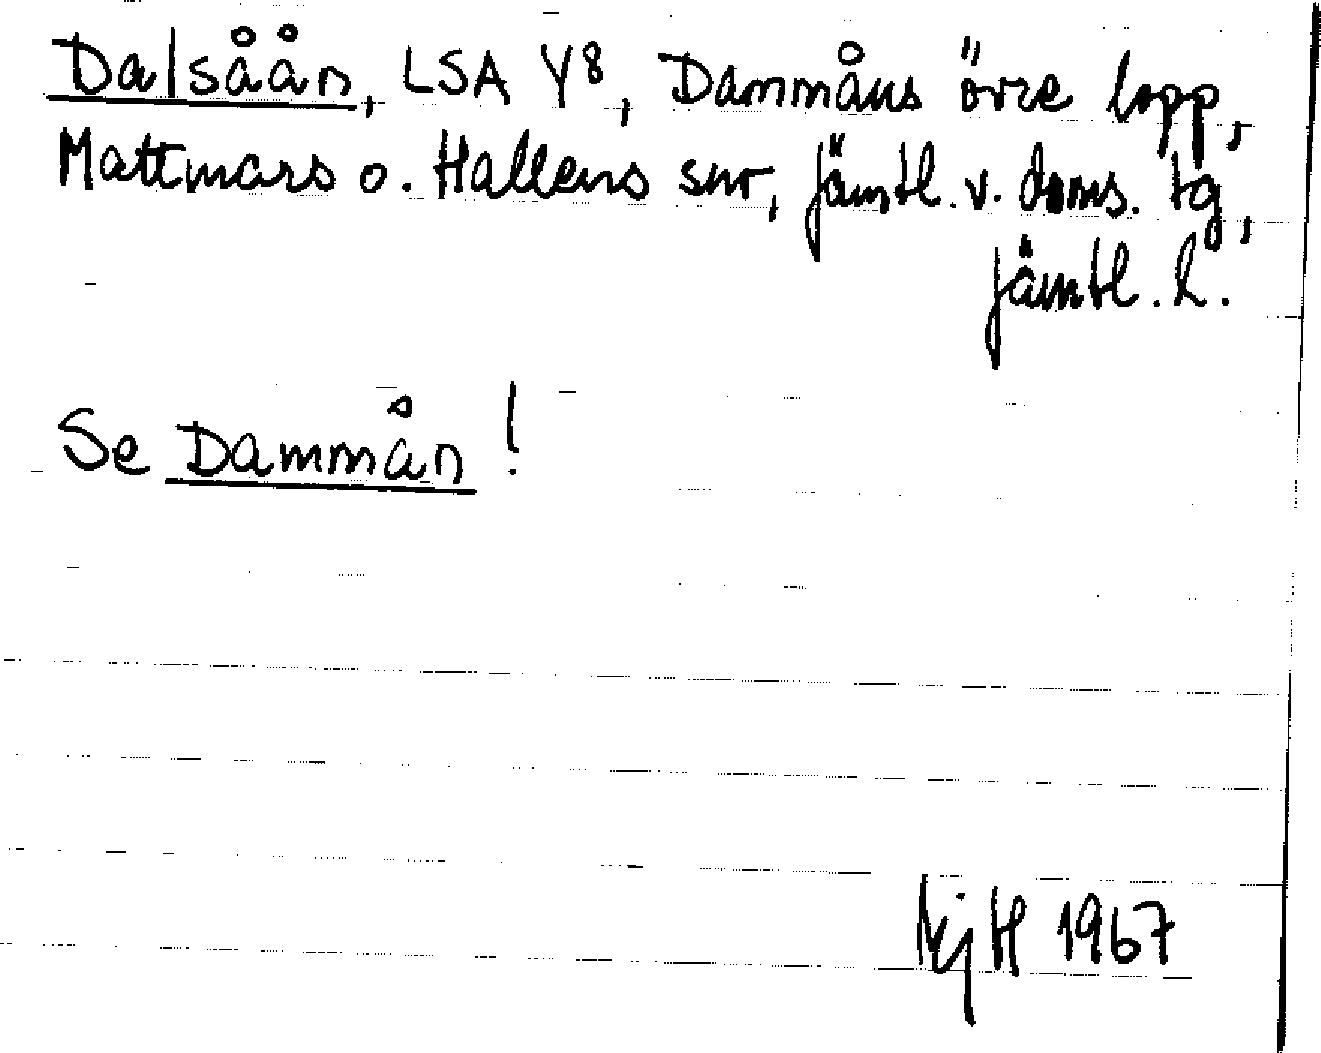 Dalsåån, LSA Y8, Dammåns övre lopp,
Mattmars o. Hallens snr, Jämtl. v. doms. tg,
Jämtl. l.
Se Dammån!
KjH 1967